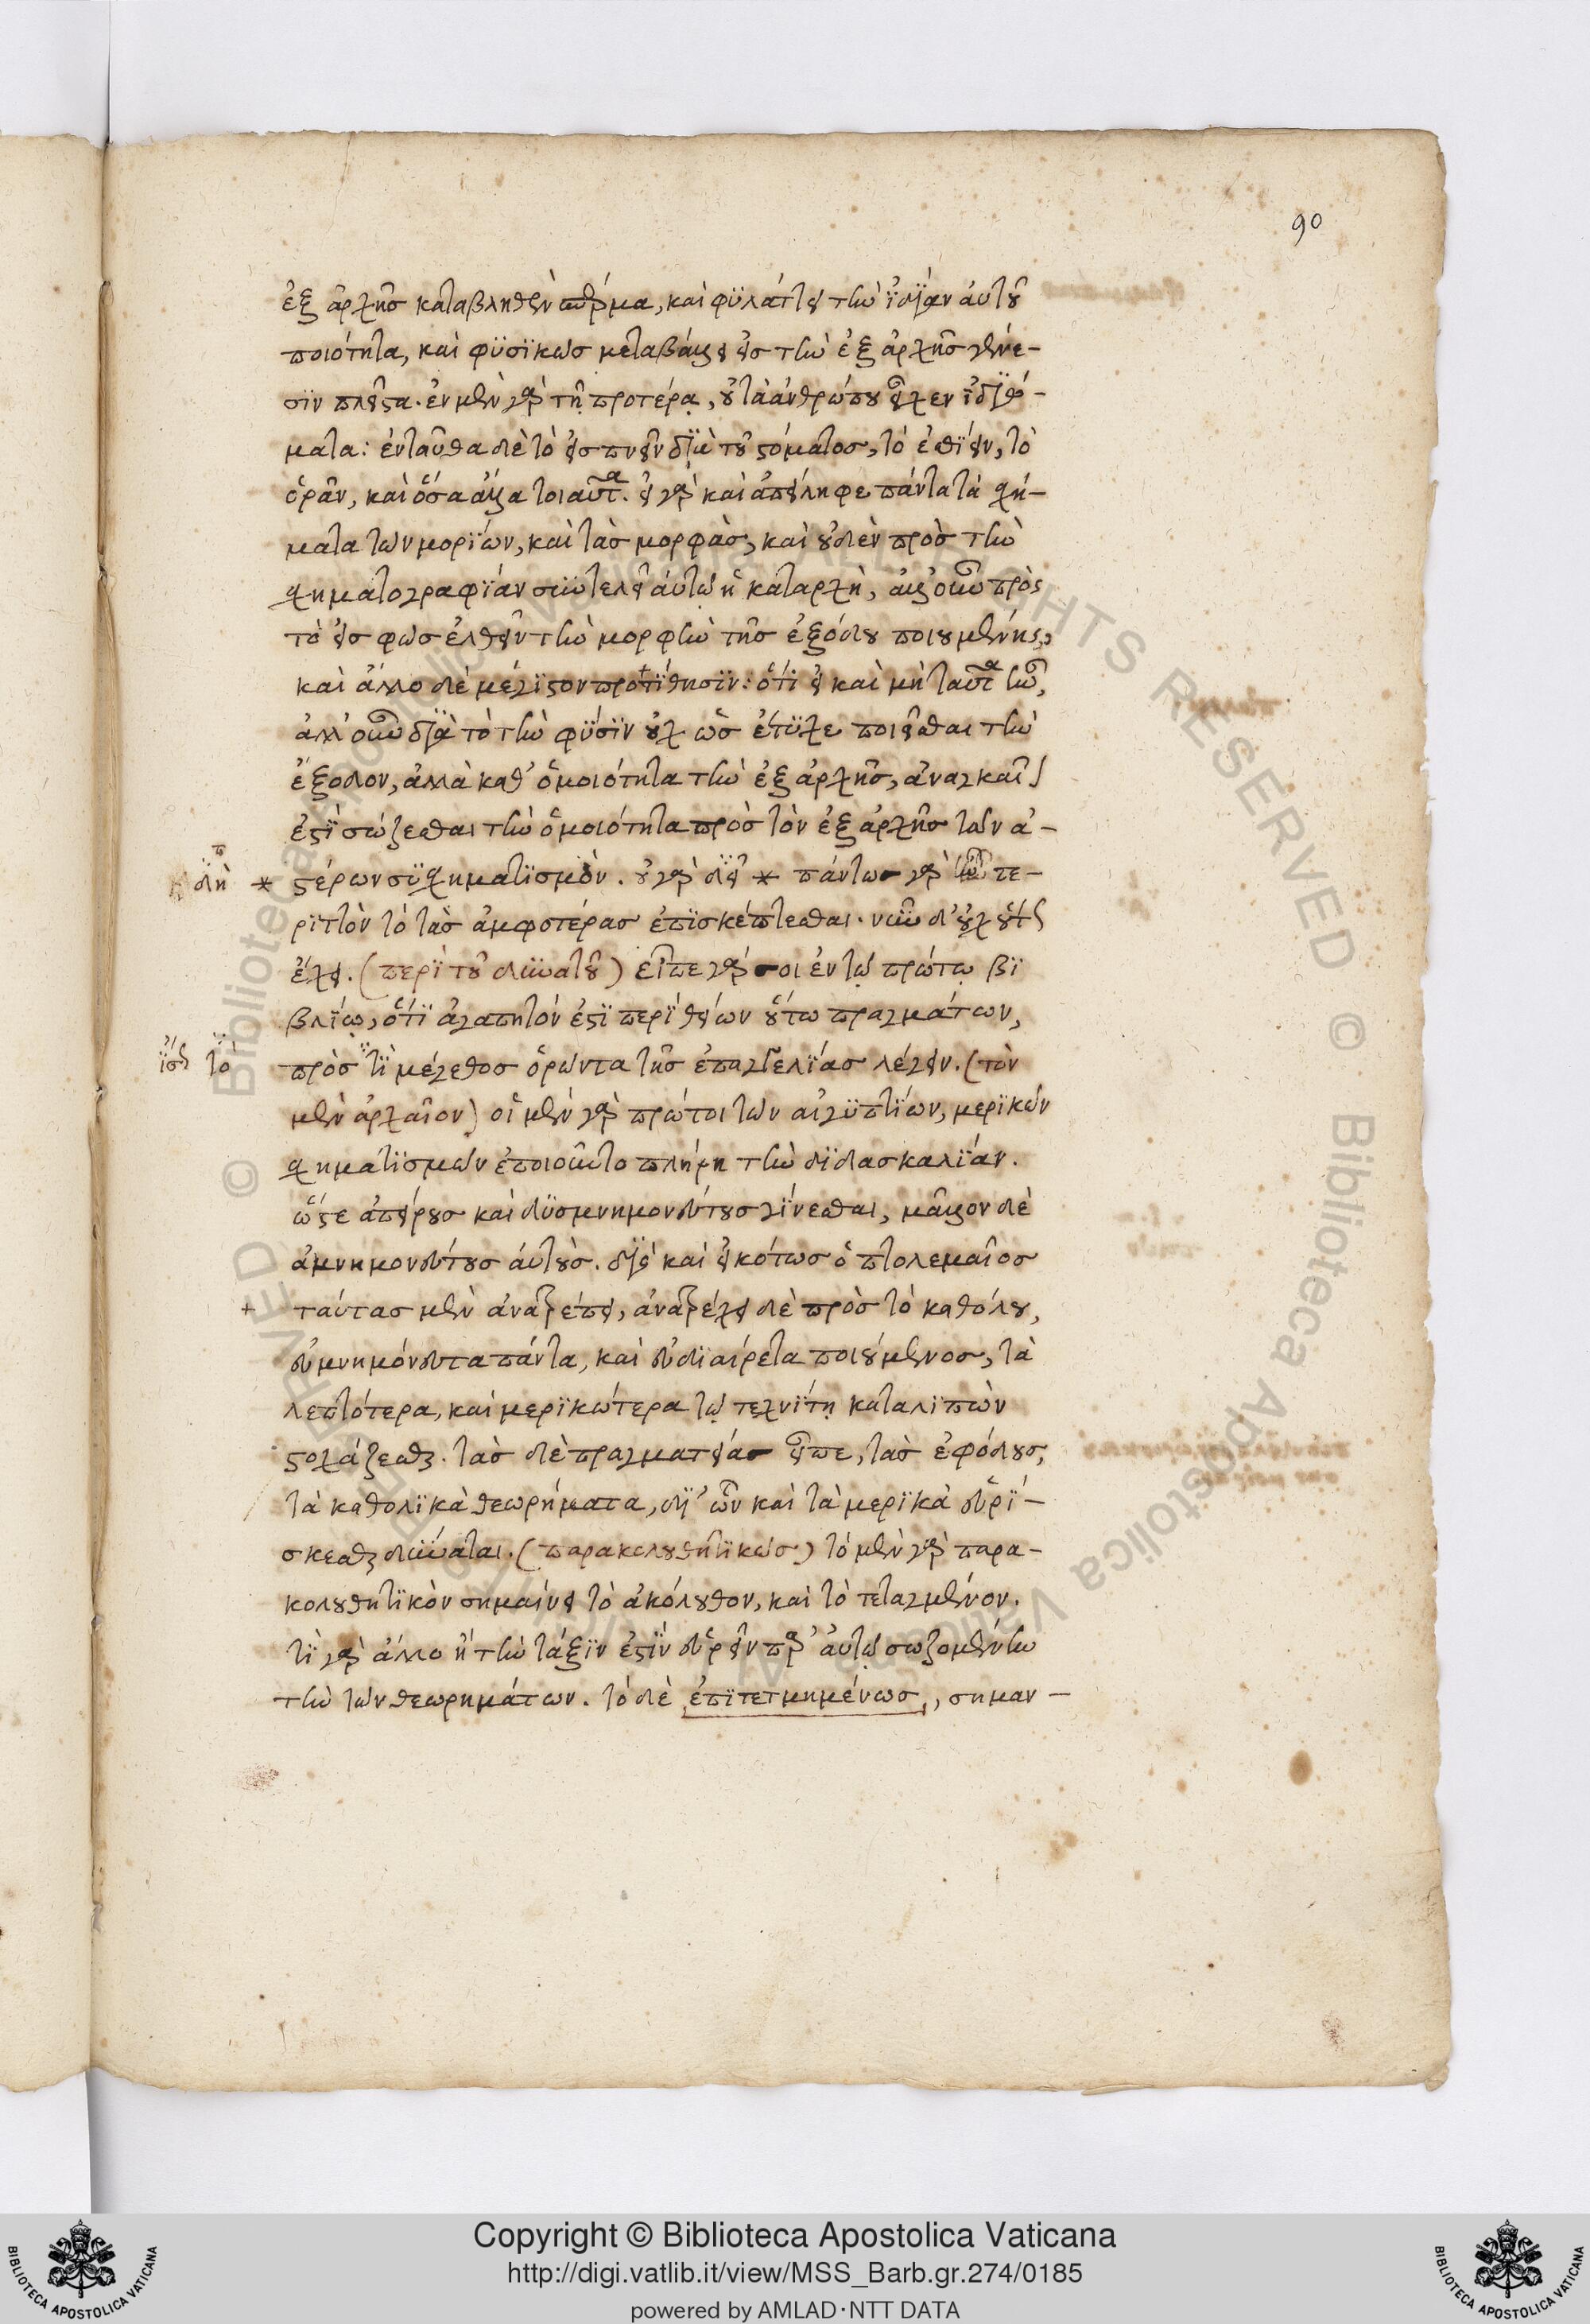 90
ἐξ ἀρχῆς καταβληθὲν σπέρμα, καὶ φϋλάττει τὴν ἰδίαν αὐτοῦ
ποιότητα, καὶ φϋσϊκῶς μεταβάλλει εἰς τὴν ἐξ ἀρχῆς γένε-
σϊν πλεῖστα. ἐν μὲν γὰρ τῇ προτέρᾳ, οὐ τὰ ἀνθρώπου εἶχεν ἰδϊώ-
ματα: ἐνταῦθα δὲ τὸ εἰσπνεῖν δϊὰ τοῦ στόματος, τὸ ἐσθϊειν, τὸ
ὁρᾶν, καὶ ὅσα ἄλλα τοιαῦτα. εἰ γὰρ καὶ ἀπείληφε πάντα τὰ σχή-
ματα τῶν μορϊων, καὶ τὰς μορφὰς, καὶ οὐδὲν πρὸς τὴν
σχηματογραφϊαν συντελεῖ αὐτῷ ἡ καταρχὴ, ἀλλ' οὖν πρὸς
τὸ εἰς φῶς ἐλθεῖν τὴν μορφὴν τῆς ἐξόδου ποιουμένης,
καὶ ἄλλο δὲ μέγϊστον προτϊθησϊν: ὅτϊ εἰ καὶ μὴ ταῦτα ἦν,
ἀλλ' οὖν δϊὰ τὸ τὴν φϋσϊν οὐχ ὡς ἔτϋχε ποιεῖσθαι τὴν
ἔξοδον, ἀλλὰ καθ' ὁμοιότητα τὴν ἐξ ἀρχῆς, ἀναγκαῖον
ἐστϊ σώζεσθαι τὴν ὁμοιότητα πρὸς τὸν ἐξ ἀρχῆς τῶν ἀ-
δὴ * στέρων σϋσχηματϊσμὸν. οὐ γὰρ δεῖ * πάντως γὰρ ἦν πε-
ρϊττὸν τὸ τὰς ἀμφοτέρας ἐπϊσκέπτεσθαι. νῦν δ' οὐχ οὕτως
ἔχει. (περϊ τοῦ δυνατοῦ) εἶπε γάρ σοι ἐν τῷ πρώτῳ βϊ
βλϊῳ, ὅτϊ ἀγαπητόν ἐστϊ περϊ θείων οὕτω πραγμάτων,
ἴσως τὸ πρὸς τϊ μέγεθος ὁρῶντα τῆς ἐπαγγελϊας λέγειν. (τὸν
μὲν ἀρχαῖον) οἱ μὲν γὰρ πρῶτοι τῶν αἰγϋπτϊων, μερϊκῶν
σχηματϊσμῶν ἐποιοῦντο πλήρη τὴν δϊδασκαλϊαν.
ὥστε ἀπείρους καὶ δϋσμνημονεύτους γϊνεσθαι, μᾶλλον δὲ
ἀμνημονεύτους αὐτοὺς. δϊὸ καὶ εἰκότως ὁ πτολεμαῖος
+ ταύτας μὲν ἀνατρέπει, ἀνατρέχει δὲ πρὸς τὸ καθόλου,
εὐμνημόνευτα πάντα, καὶ εὐδϊαίρετα ποιούμενος, τὰ
λεπτότερα, καὶ μερϊκώτερα τῷ τεχνίτῃ καταλϊπὼν
στοχάζεσθαι. τὰς δὲ πραγματείας εἶπε, τὰς ἐφόδους,
τὰ καθολϊκὰ θεωρήματα, δϊ' ὧν καὶ τὰ μερϊκὰ εὑρϊ-
σκεσθαι δύναται. (παρακολουθητϊκῶς) τὸ μὲν γὰρ παρα-
κολουθητϊκὸν σημαίνει τὸ ἀκόλουθον, καὶ τὸ τεταγμένον.
τϊ γὰρ ἄλλο ἢ τὴν τάξϊν ἐστϊν εὑρεῖν παρ' αὐτῷ σωζομένην
τὴν τῶν θεωρημάτων. τὸ δὲ ἐπϊτετμημένως, σημαν-
Copyright © Biblioteca Apostolica Vaticana
http://digi.vatlib.it/view/MSS_Barb.gr.274/0185
powered by AMLAD·NTT DATA
BIBLIOTECA APOSTOLICA VATICANA
BIBLIOTECA APOSTOLICA VATICANA